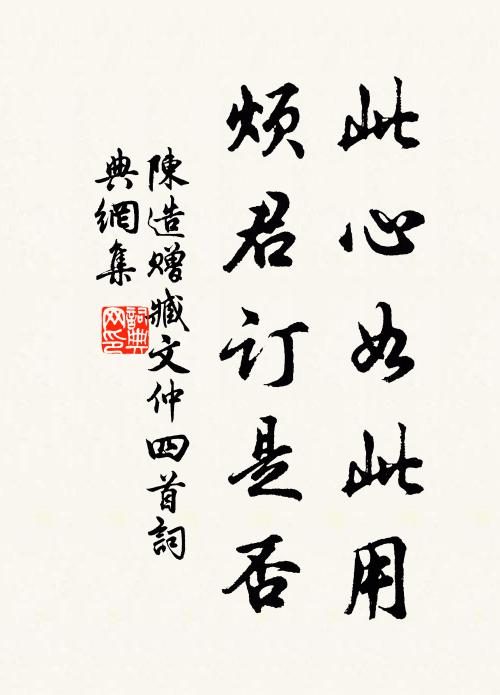 此心如此用
烦君订是否
陳造贈臧文仲四首詞
典網集
詞典网印